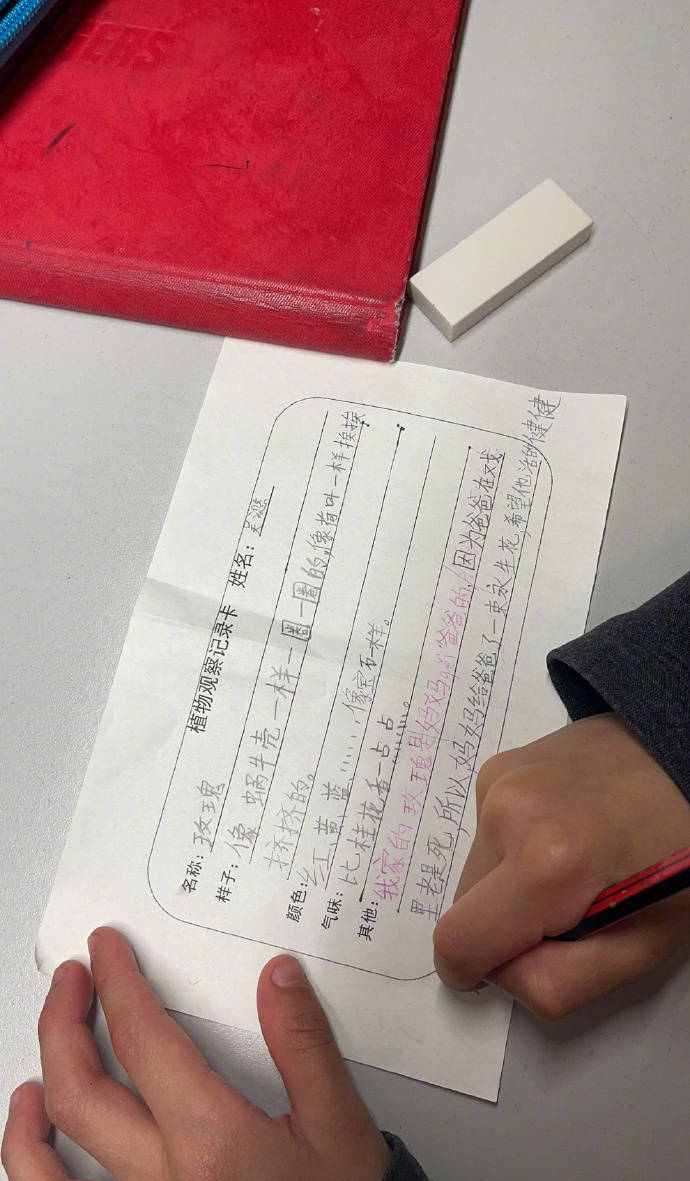 TERS
植物观察记录卡 姓名：
名称：玫瑰
样子：像蜗牛壳一样一圈一圈的,像荷叶一样挨挨
挤挤的。
颜色：红、黄、蓝……,像宝石一样。
气味：比桂花香一点点。
其他：我家的玫瑰是妈妈爸爸的,因为爸爸在戏
里老是死,所以妈妈给爸爸了一束永生花,希望他活的健健